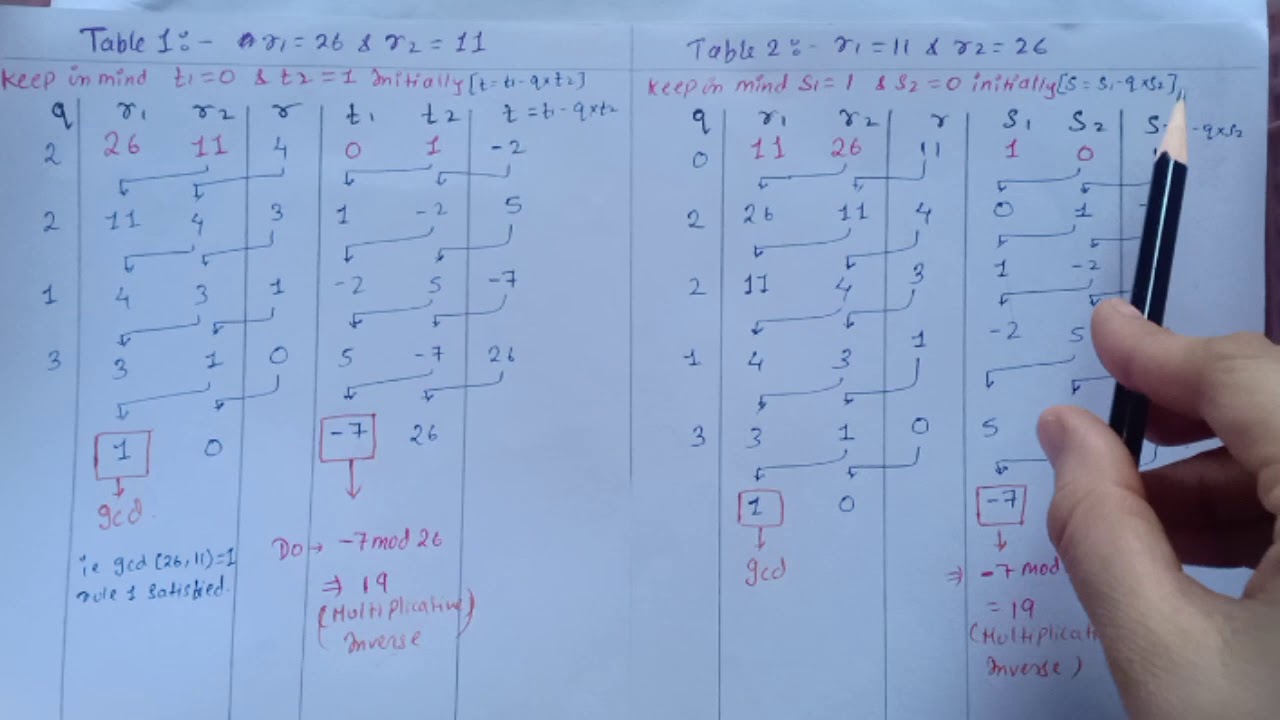 Table 1:- r₁=26 & r₂=11
Keep in mind t₁=0 & t₂=1 Initially [t=t₁-q×t₂]
q r₁ r₂ r t₁ t₂ t=t₁-q×t₂
2 26 11 4 0 1 -2
2 11 4 3 1 -2 5
1 4 3 1 -2 5 -7
3 3 1 0 5 -7 26
1 0 -7 26
gcd
ie gcd (26,11)=1
rule 1 satisfied.
Do → -7 mod 26
⇒ 19
(Multiplicative
Inverse)
Table 2:- r₁=11 & r₂=26
Keep in mind S₁=1 & S₂=0 initially [S=S₁-q×S₂]
q r₁ r₂ r S₁ S₂ S -q×S₂
0 11 26 11 1 0
2 26 11 4 0 1
2 11 4 3 1 -2
1 4 3 1 -2 5
3 3 1 0 5
1 0 -7
gcd
⇒ -7 mod
= 19
(Multiplicati
Inverse)